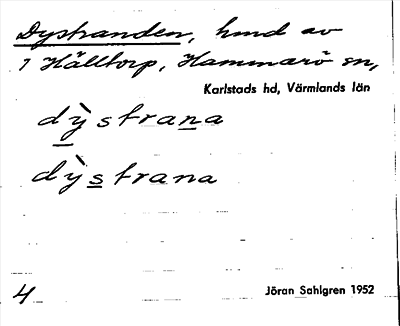 Dystranden, hmd av
1 Hälltorp, Hammarö sn,
Karlstads hd, Värmlands län
dỳ̱straṉa
dỳs̱trana
4
Jöran Sahlgren 1952